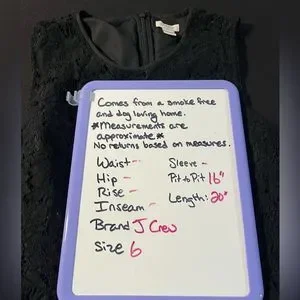 Comes from a smoke free
and dog loving home.
*Measurements are
approximate*
No returns based on measures.
Waist -
Hip -
Rise -
Inseam -
Brand J Crew
Size 6
Sleeve -
Pit to Pit 16"
Length: 20"